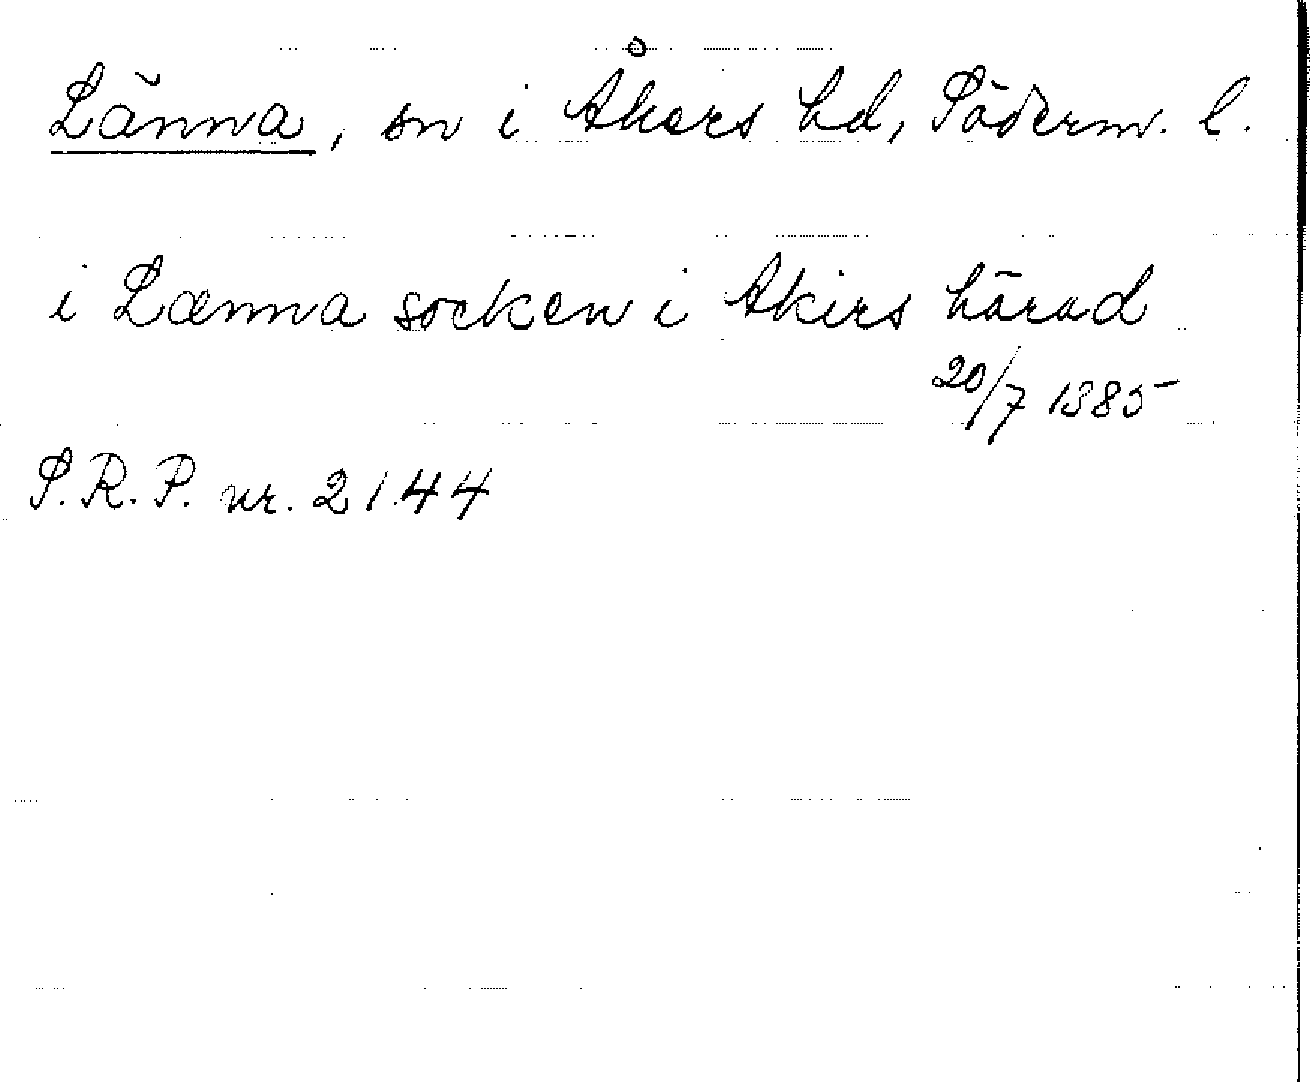 Länna, sn i Åkers hd, Söderm. l.
i Lænna socken i Akirs härad
20/7 1385
S.R.P. nr. 2144